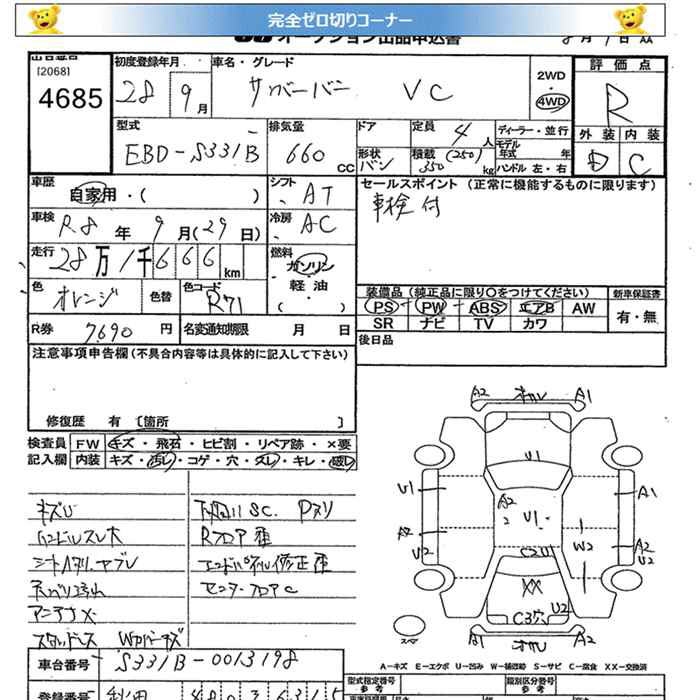 完全ゼロ切りコーナー
オークション出品申込書
出品番号
[2068]
4685
初度登録年月 車名・グレード
28 9月 サンバーバン VC
2WD
4WD
評価点
R
外装 内装
D C
型式 排気量 ドア 定員 4人 ディーラー・並行
EBD-S331B 660CC 形状 バン 積載 (250) 350kg モデル年式 年
ハンドル 左・右
車歴 自家用・( ) シフト AT
セールスポイント (正常に機能するものに限ります)
車検付
車検 R8年 9月(29日) 冷房 AC
走行 28万1千666km 燃料 ガソリン・軽油・( )
色 オレンジ 色替 色コード R71
装備品 (純正品に限り○をつけてください) 新車保証書
PS PW ABS エアB AW 有・無
SR ナビ TV カワ
R券 7690円 名変通知期限 月 日
後日品
注意事項申告欄(不具合内容等は具体的に記入して下さい)
修復歴 有 [箇所 ]
検査員 FW キズ・飛石・ヒビ割・リペア跡・×要
記入欄 内装 キズ・汚れ・コゲ・穴・スレ・キレ・破れ
キズU
ハンドルスレ大
天バリ汚れ
アンテナX
下廻りSC. Pヌリ
Rフロア歪
エンドパネル修正歪
センターフロアC
A2 A1
U1
U1 A1
A2 U1
A2
U2 W2 A2
U2
C2U1
XX
U2
C3穴
A1 A2
A-キズ E-エクボ U-凹み W-補修跡 S-サビ C-腐食 XX-交換済
車台番号 S331B-0013198
型式指定番号 類別区分番号
参考 参考
登録番号 秋田 480